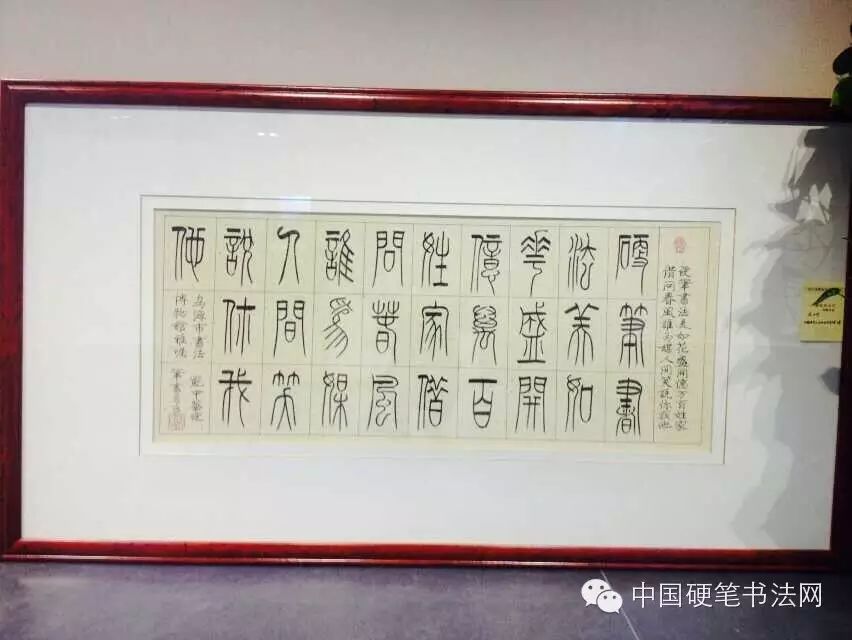 硬筆書法美如花盛開億万百姓家
借问春風誰为媒人间笑説你我他
硬筆書
法美如
華盛開
億萬百
姓家借
問春風
誰爲媒
人間笑
說你我
他
烏海市書法
博物館雅嘱
中国硬笔书法网